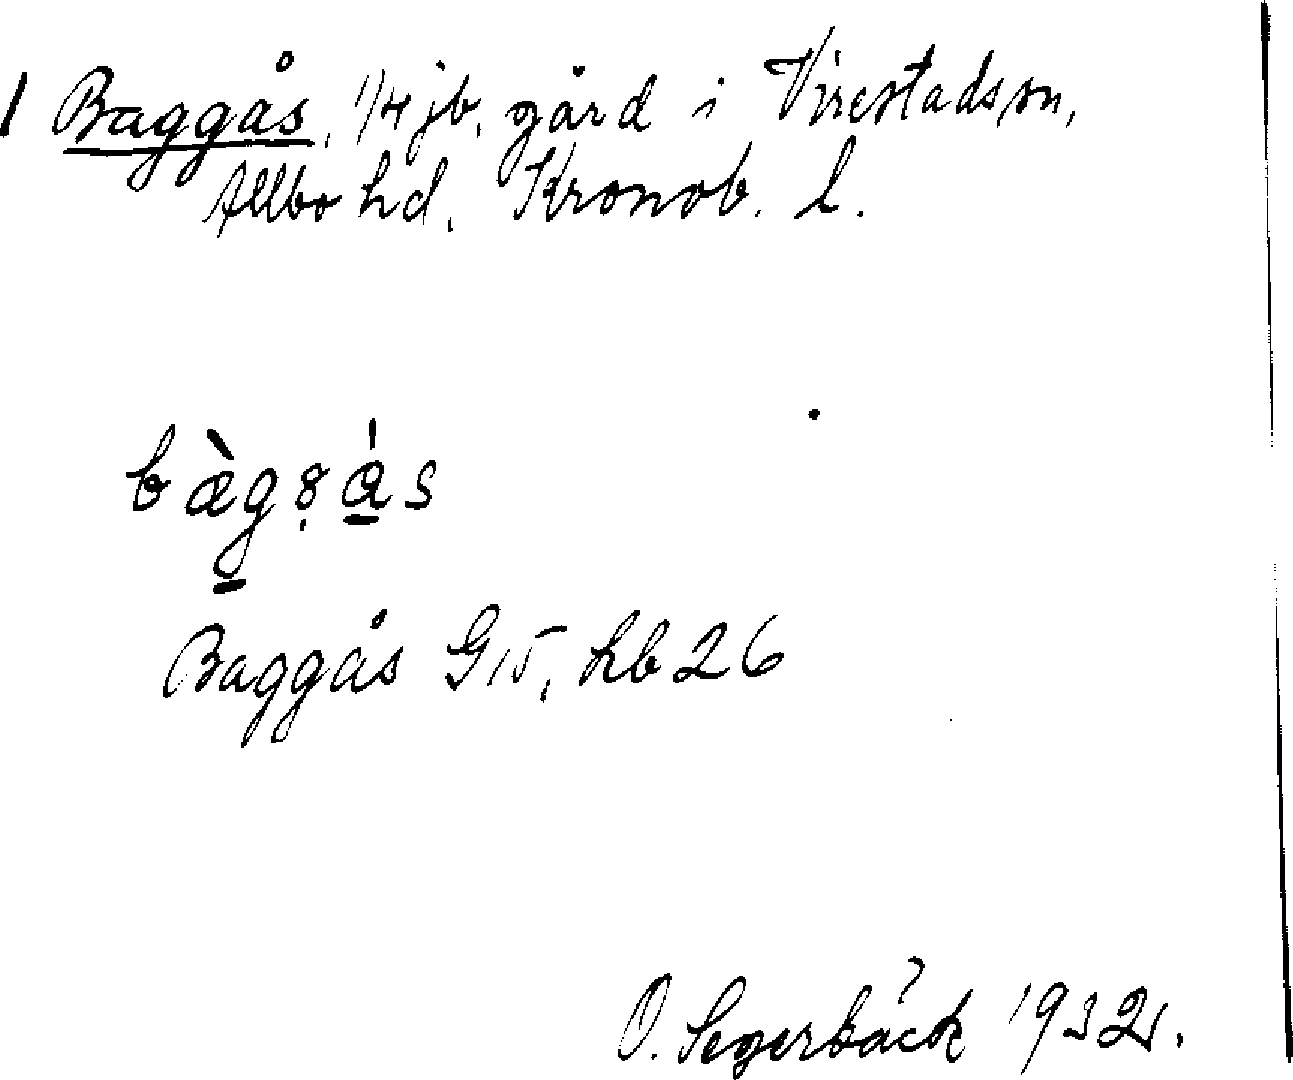 1 Baggås, 1/4 jb. gård i Virestads sn,
Allbo hd. Kronob. l.
Baggås G15, hb 26
O. Segerbäck 1932.